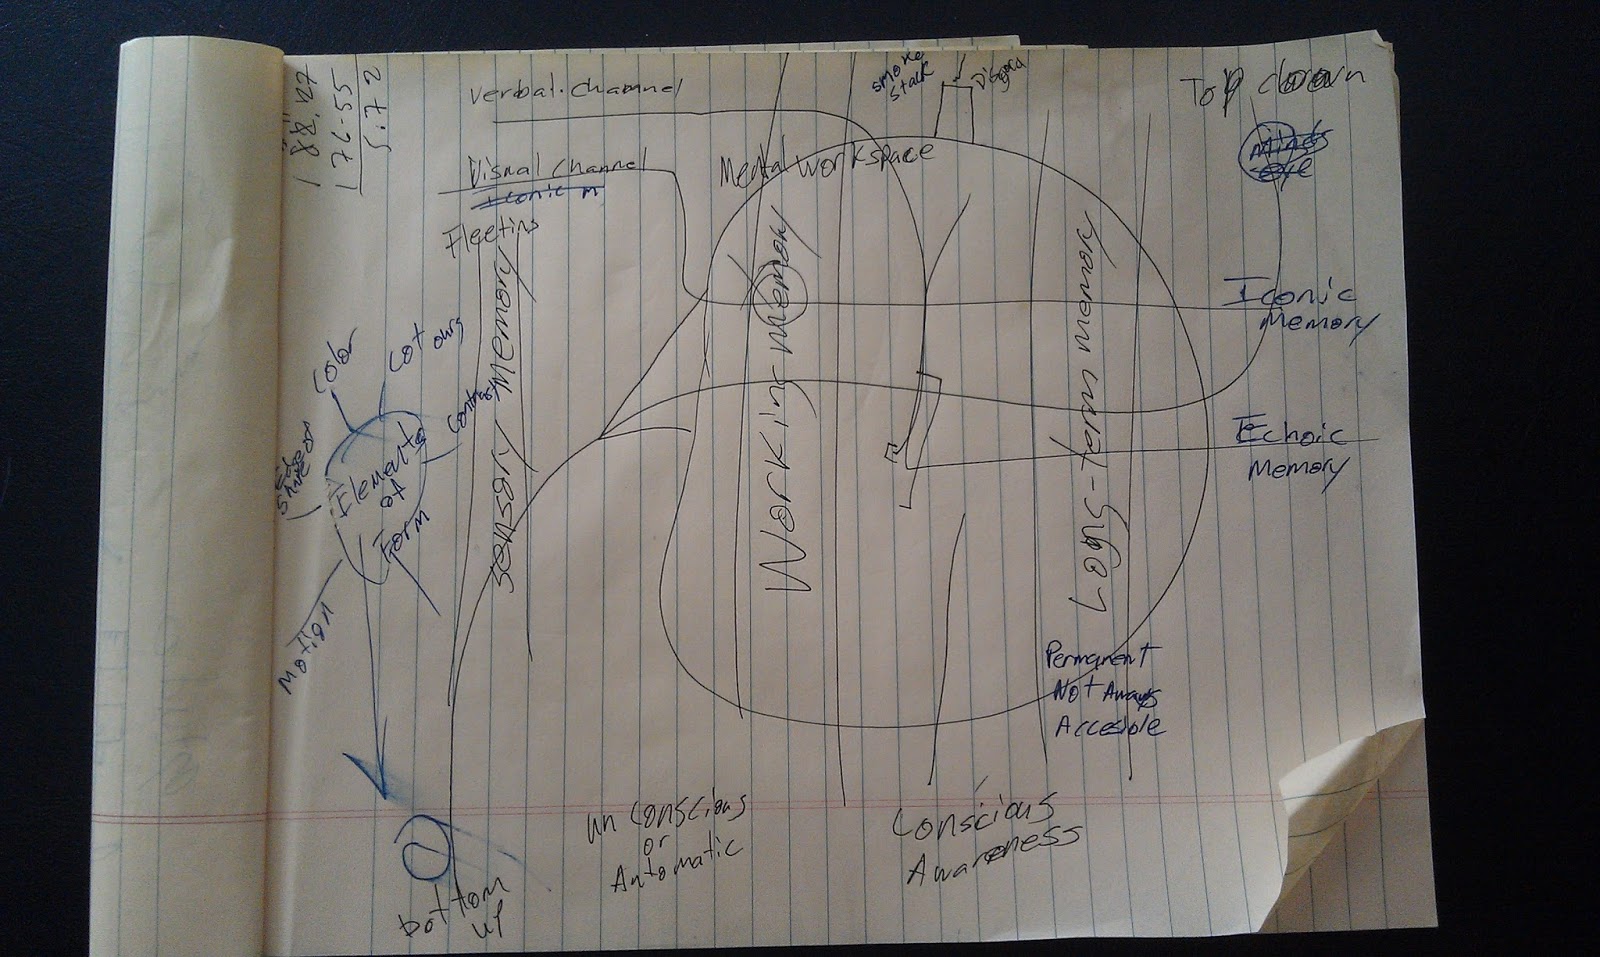 188.27
176.55
5.72
verbal channel
Visual channel
Iconic m
Fleeting
Sensory Memory
Mental workspace
smoke
stack
Discard
Top down
Minds
eye
Working memory
Long-term memory
Iconic
Memory
Echoic
Memory
Color
Contrast
Elements
of
Form
Motion
Permanent
Not Always
Accesible
un conscious
or
Automatic
Conscious
Awareness
bottom
up